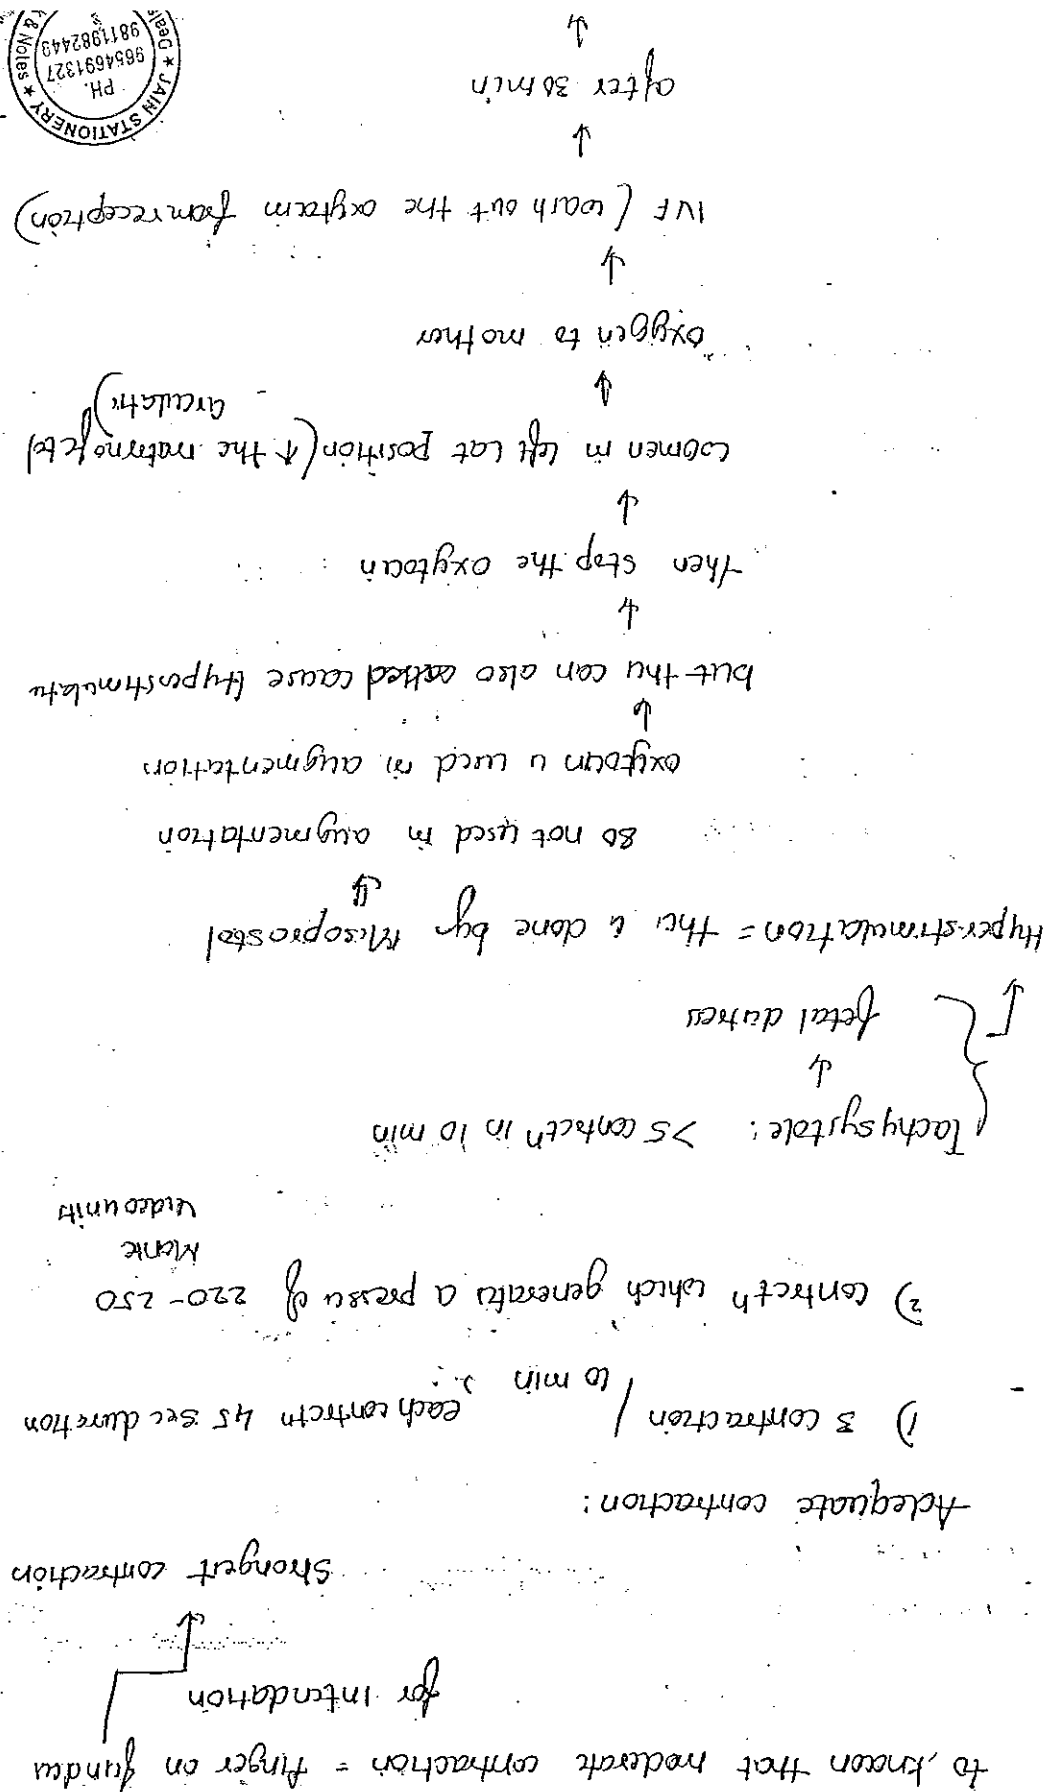 to known that moderate contraction = finger on fundus
for Intendation
Strongest contraction
Adequate contraction:
1) 3 contraction / 10 min
each contrctn 45 sec duretion
2) contrctⁿ which generates a pressu of 220-250
Monte
video units
Tachysystole: >5 contactⁿ in 10 min
↓
fetal distress
Hyper-stimulation = this is done by Misoprostol
⇓
so not used in augmentation
oxytocin is used in augmentation
↓
but this can also cause Hyperstimulatn
↓
then stop the oxytocin
↓
women in left Lat position (↑ the materno fetal
circulatn)
↓
oxygen to mother
↓
IVF (wash out the oxytocin from reception)
↓
after 30 min
↓
★ JAIN STATIONERY ★
& Notes
PH.
9654691327
9811982449